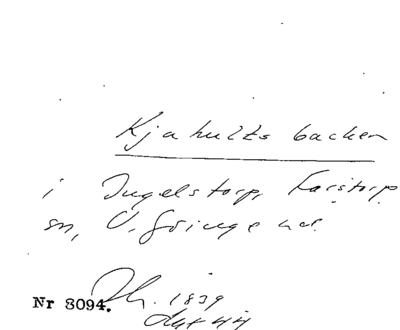 Kjahults backen
i Ingelstorp, Farstorp
sn, V. Göinge hd.
Nr 8094. 1839